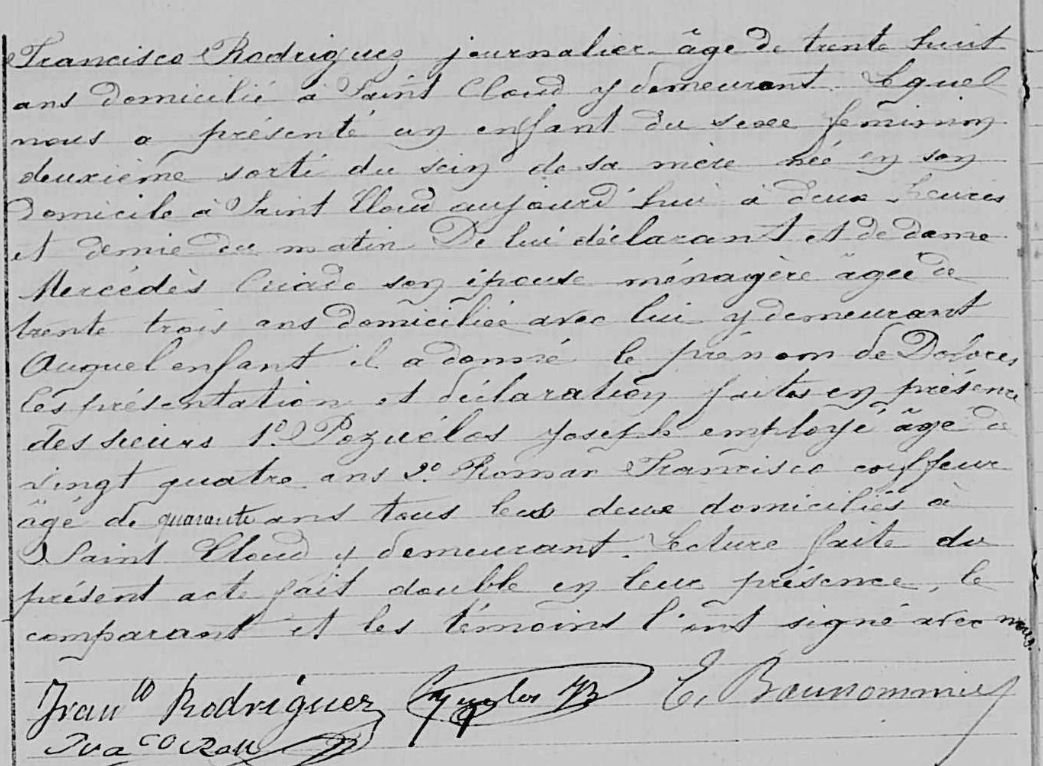 Francisco Rodriguez journalier âgé de trente huit
ans domicilié à Saint Cloud y demeurant. Lequel
nous a présenté un enfant du sexe féminin
deuxième sorti du sein de sa mère née en son
domicile à Saint Cloud aujourd'hui à deux heures
et demie du matin De lui déclarant et de dame
Mercédès Criado son épouse ménagère âgée de
trente trois ans domiciliée avec lui y demeurant
Auquel enfant il a donné le prénom de Dolores
les présentation et déclaration faites en présence
des sieurs 1º Pozuélos Joseph employé âgé de
vingt quatre ans 2º Roman Francisco coiffeur
âgé de quarante ans tous les deux domiciliés à
Saint Cloud y demeurant. Lecture faite du
présent acte fait double en leur présence, le
comparant et les témoins l'ont signé avec nous.
Franco Rodriguez E. Bounommie